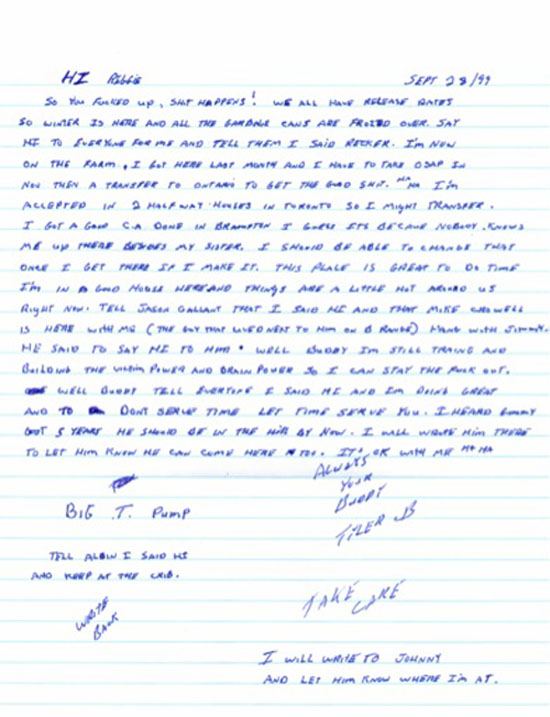 HI Robbie SEPT 28/99
SO YOU FUCKED UP, SHIT HAPPENS! WE ALL HAVE RELEASE DATES
SO WINTER IS HERE AND ALL THE GARBAGE CANS ARE FROZED OVER. SAY
HI TO EVERYONE FOR ME AND TELL THEM I SAID RECKER. I'M NOW
ON THE FARM, I GOT HERE LAST MONTH AND I HAVE TO TAKE OSAP IN
NOV THEN A TRANSFER TO ONTARIO TO GET THE GOOD SHIT. HA HA I'M
ACCEPTED IN 2 HALFWAY HOUSES IN TORONTO SO I MIGHT TRANSFER.
I GOT A GOOD C.A DONE IN BRAMPTON I GUESS ITS BECAUSE NOBODY KNOWS
ME UP THERE BESIDES MY SISTER. I SHOULD BE ABLE TO CHANGE THAT
ONCE I GET THERE IF I MAKE IT. THIS PLACE IS GREAT TO DO TIME
I'M IN A GOOD HOUSE HERE AND THINGS ARE A LITTLE HOT AROUND US
RIGHT NOW. TELL JASON GALLANT THAT I SAID HI AND THAT MIKE CROWELL
IS HERE WITH ME (THE GUY THAT LIVED NEXT TO HIM ON B RANGE) HANG WITH JIMMY.
HE SAID TO SAY HI TO HIM. WELL BUDDY I'M STILL TRAING AND
BUILDING THE POWER AND BRAIN POWER SO I CAN STAY THE FUCK OUT.
WELL BUDDY TELL EVERYONE I SAID HI AND I'M DOING GREAT
AND TO DONT SERVE TIME LET TIME SERVE YOU. I HEARD
GOT 5 YEARS HE SHOULD BE IN THE BY NOW. I WILL WRITE HIM THERE
TO LET HIM KNOW HE CAN COME HERE TOO. ITS OK WITH ME HA HA
ALWAYS
YOUR
BUDDY
TYLER B
BIG T. PUMP
TELL I SAID HI
AND KEEP AT THE CRIB.
WRITE
BACK
TAKE CARE
I WILL WRITE TO JOHNNY
AND LET HIM KNOW WHERE I'M AT.